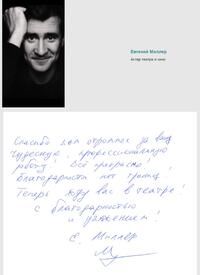 Евгений Миллер
Актер театра и кино
Спасибо вам огромное за вашу
чудесную, профессиональную
работу. Всё прекрасно!
Благодарности нет границ.
Теперь жду вас в театре!
С благодарностью
и уважением!
Е. Миллер